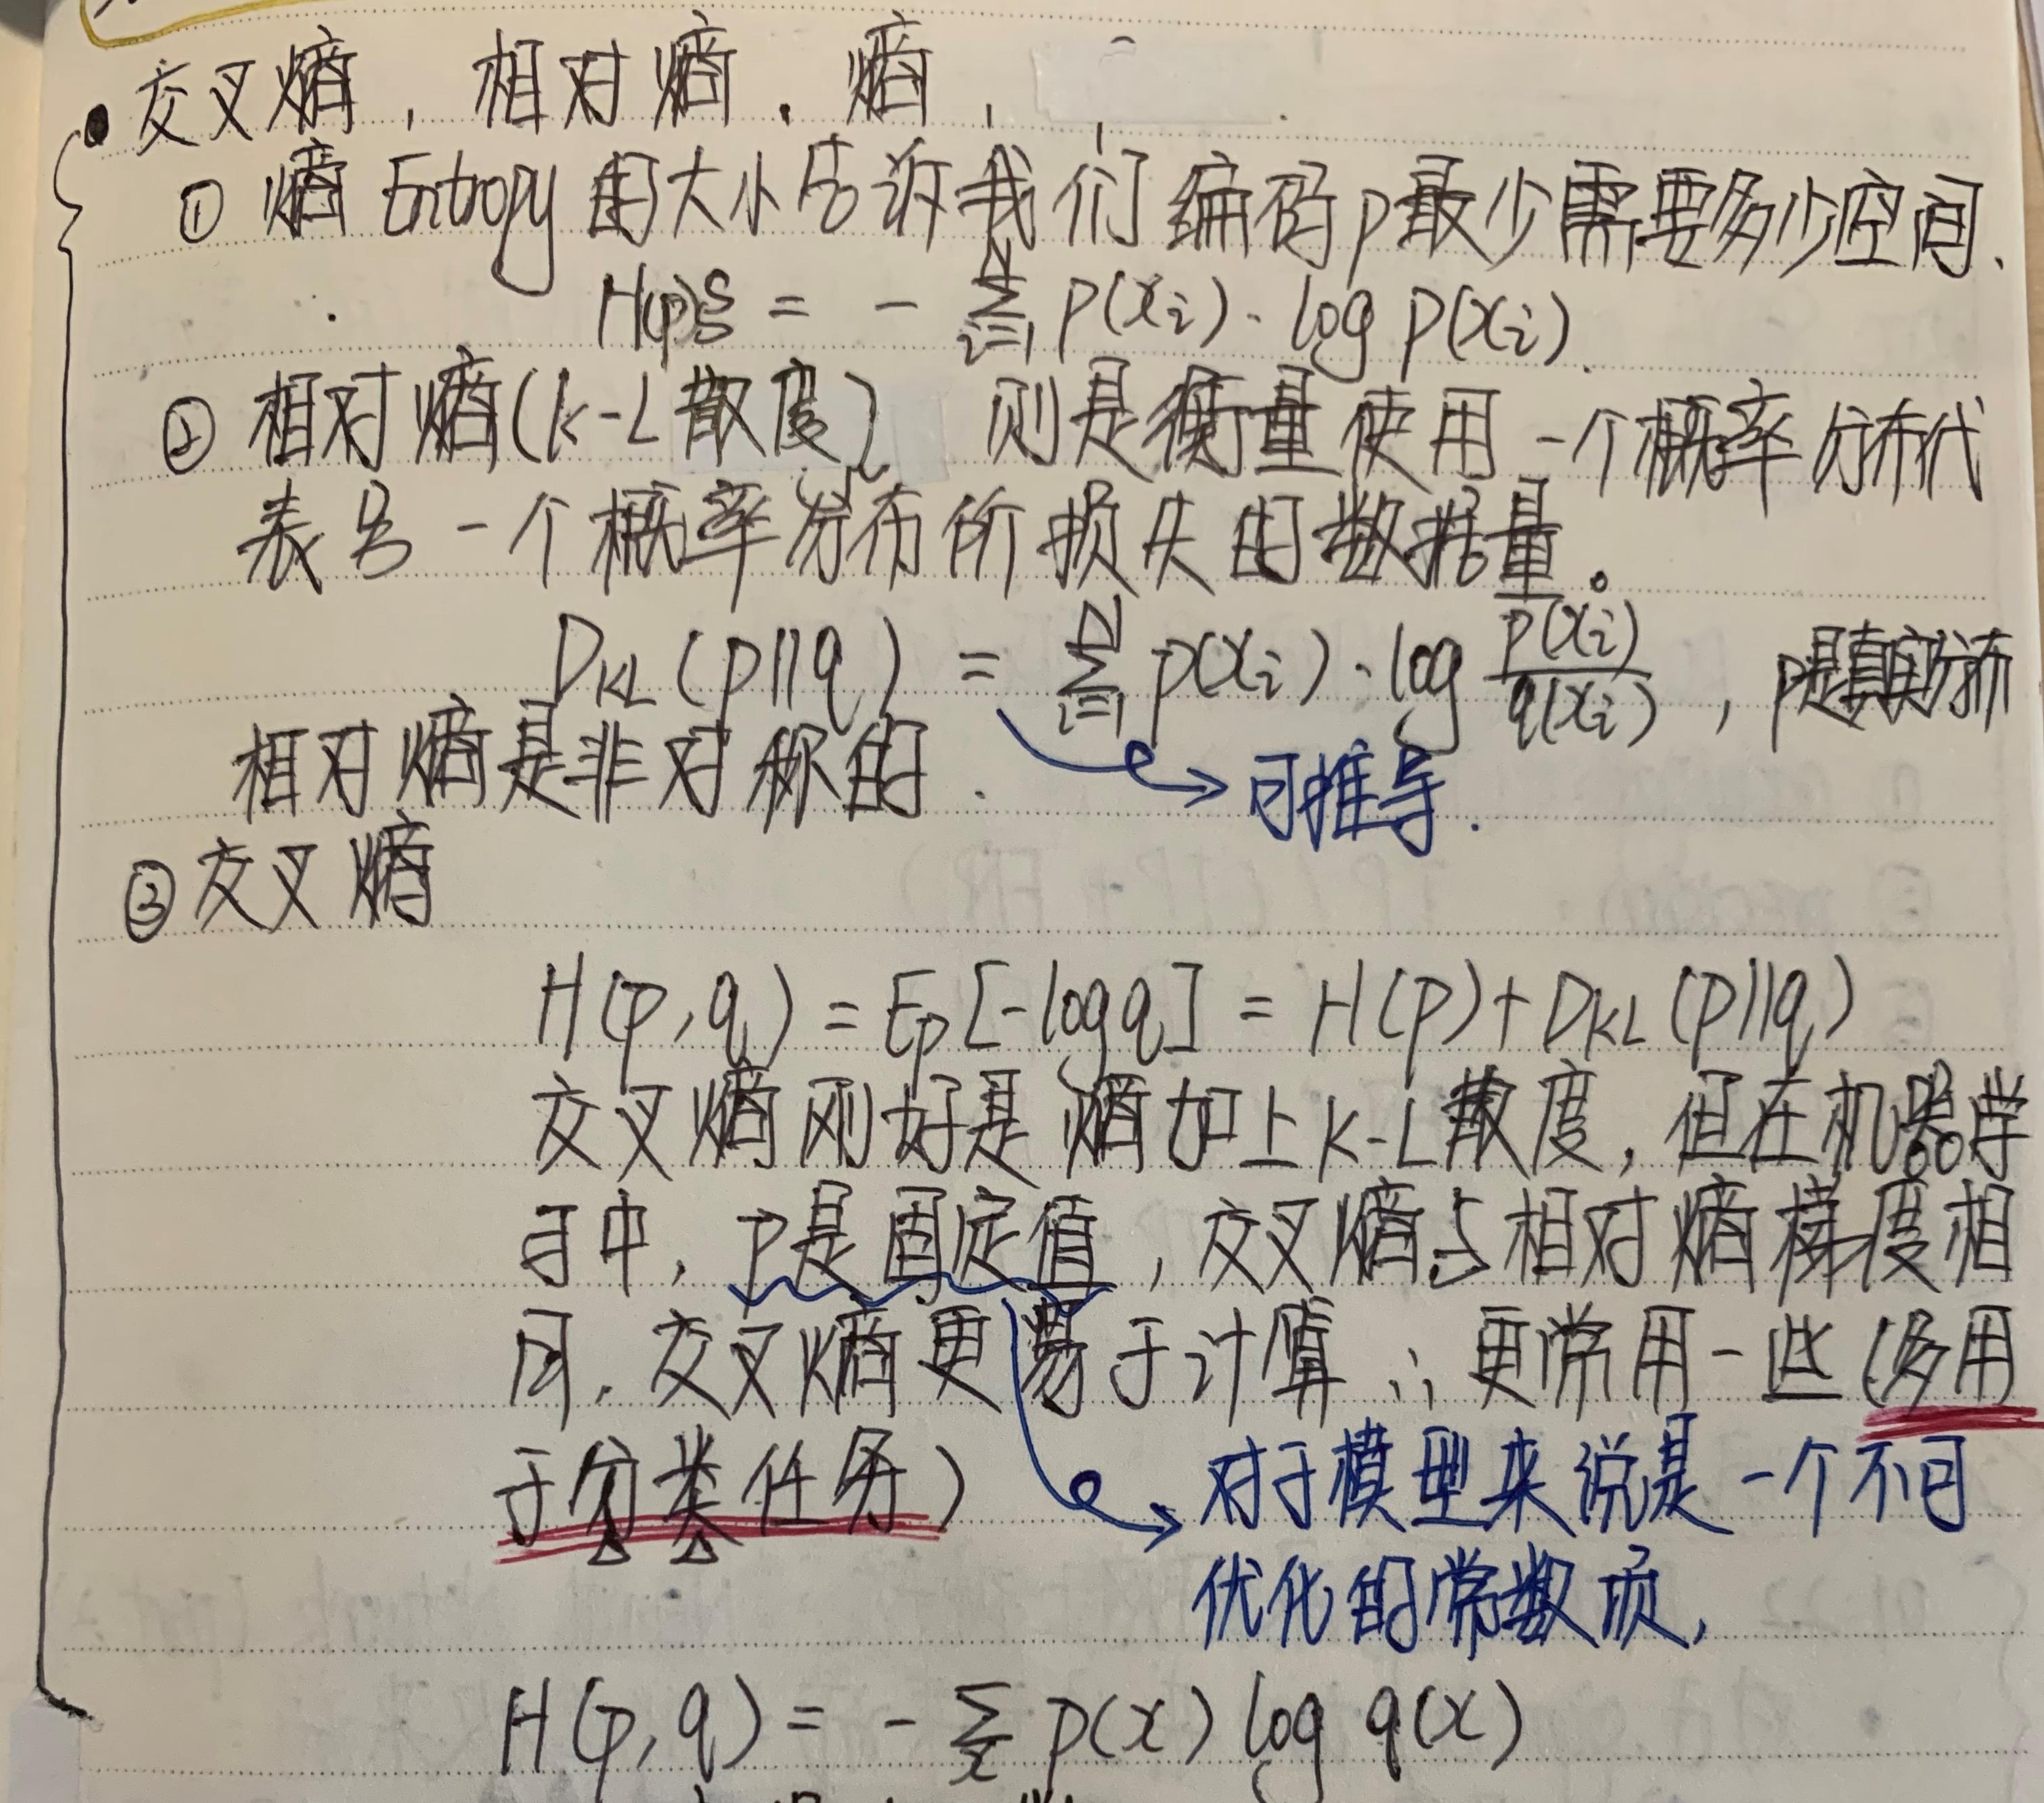 交叉熵，相对熵．熵，
① 熵 Entropy 的大小告诉我们编码p最少需要多少空间.
H(p) = - ∑_{i=1}^{N} p(x_i)·log p(x_i).
② 相对熵(K-L散度) 则是衡量使用一个概率分布代
表另一个概率分布所损失的数据量。
D_{KL}(p||q) = ∑_{i=1}^{N} p(x_i)·log p(x_i)/q(x_i)，p是真实分布
相对熵是非对称的.
可推导.
③ 交叉熵
H(p,q) = E_p[-log q] = H(p)+D_{KL}(p||q)
交叉熵刚好是熵加上K-L散度，但在机器学
习中，p是固定值，交叉熵与相对熵梯度相
同，交叉熵更易于计算∴更常用一些(多用
于分类任务)
对于模型来说是一个不可
优化的常数项,
H(p,q) = - ∑_x p(x) log q(x)